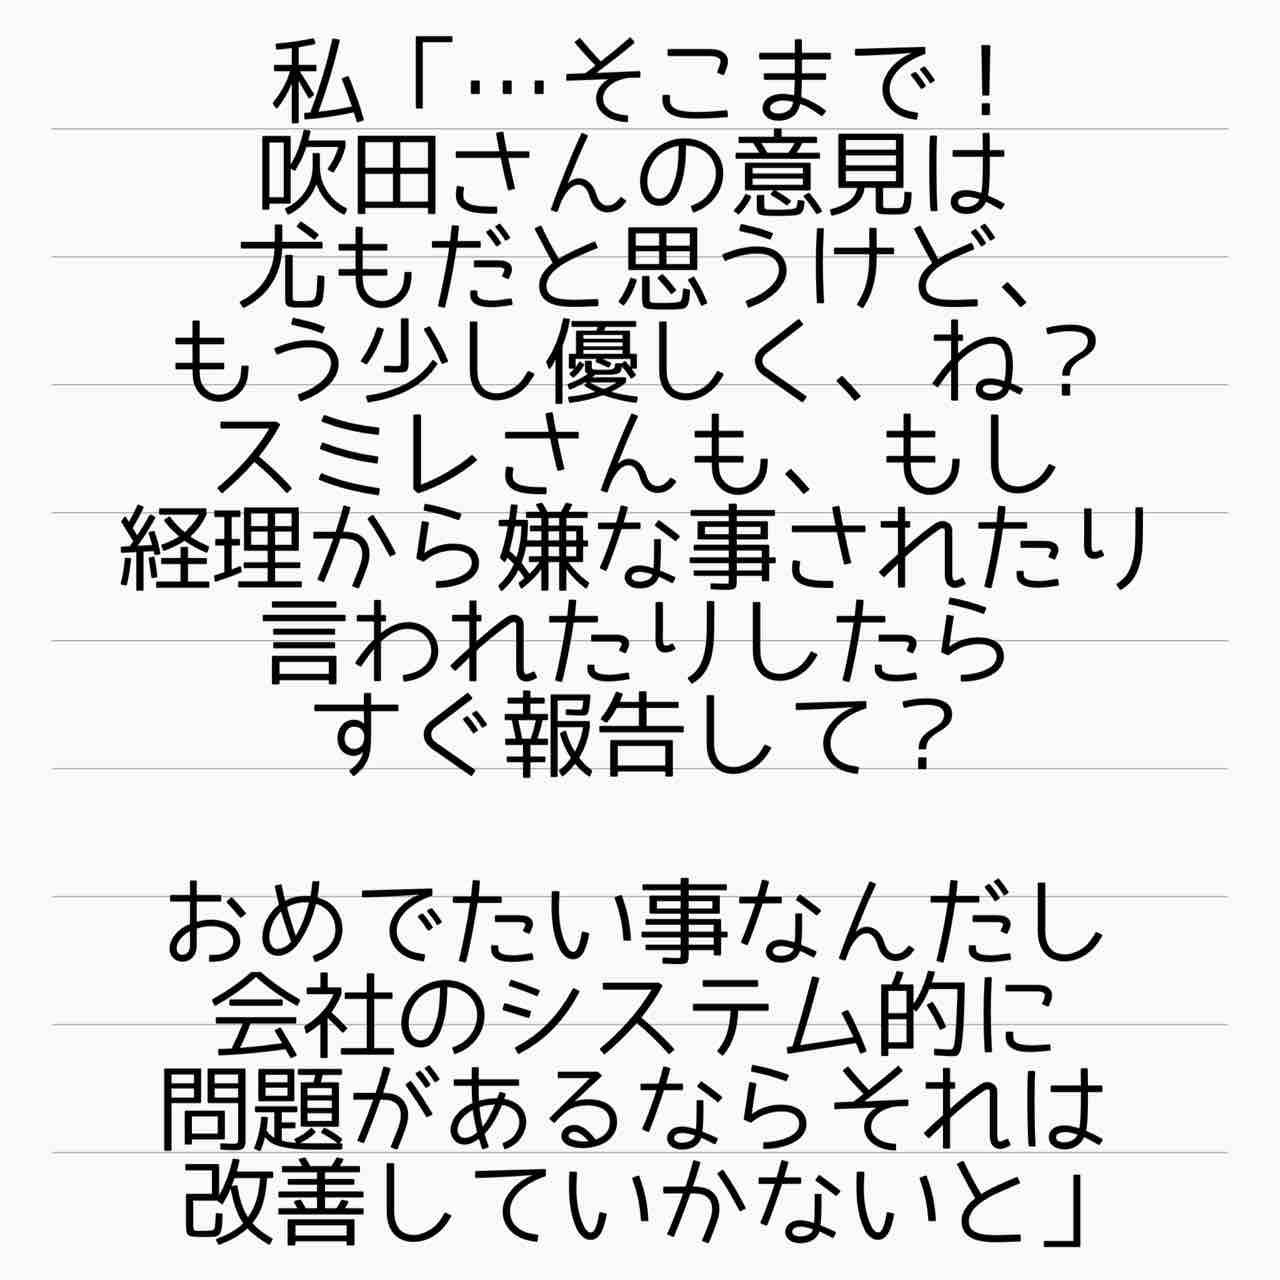 私「…そこまで！
吹田さんの意見は
尤もだと思うけど、
もう少し優しく、ね？
スミレさんも、もし
経理から嫌な事されたり
言われたりしたら
すぐ報告して？
おめでたい事なんだし
会社のシステム的に
問題があるならそれは
改善していかないと」